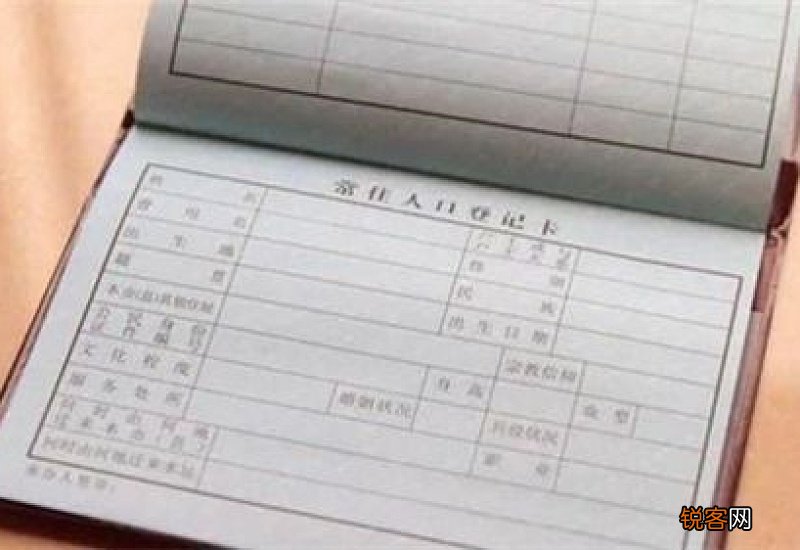 常住人口登记卡
姓 名
曾 用 名
性 别
出 生 地
民 族
籍 贯
出 生 日 期
本市(县)其他住址
宗教信仰
公 民 身 份
证 件 编 号
身 高
血 型
文 化 程 度
婚姻状况
兵役状况
服 务 处 所
职 业
何 时 由 何 地
迁 来 本 市 ( 县 )
何时由何地迁来本址
锐客网